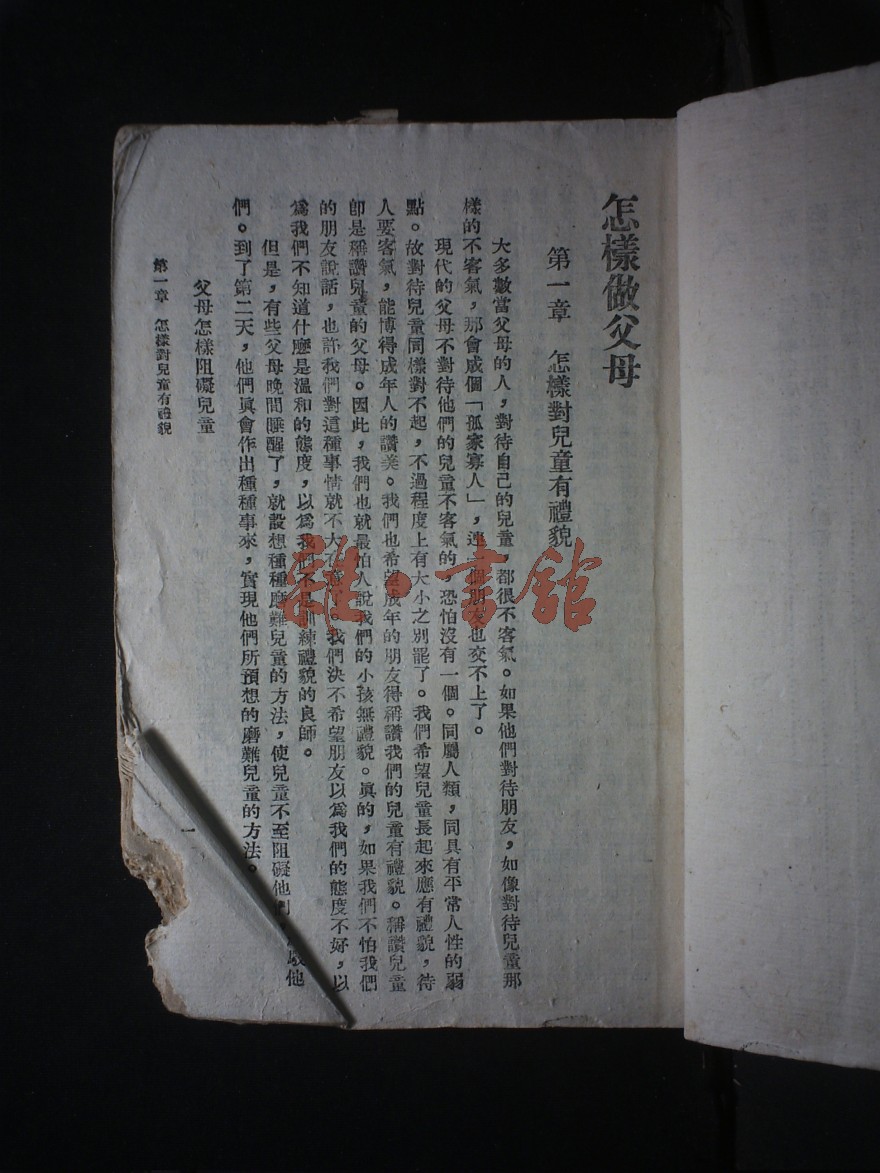 怎樣做父母
第一章　怎樣對兒童有禮貌
大多數當父母的人，對待自己的兒童，都很不客氣。如果他們對待朋友，如像對待兒童那
樣的不客氣，那會成個「孤家寡人」，連一個朋友也交不上了。
現代的父母不對待他們的兒童不客氣的，恐怕沒有一個。同屬人類，同具有平常人性的弱
點。故對待兒童同樣對不起，不過程度上有大小之別罷了。我們希望兒童長起來應有禮貌，待
人要客氣，能博得成年人的讚美。我們也希望成年的朋友得稱讚我們的兒童有禮貌。稱讚兒童
卽是稱讚兒童的父母。因此，我們也就最怕人說我們的小孩無禮貌。眞的，如果我們不怕我們
的朋友說話，也許我們對這種事情就不大在意了。我們決不希望朋友以爲我們的態度不好，以
爲我們不知道什麽是溫和的態度，以爲我們不是訓練禮貌的良師。
但是，有些父母晚間睡醒了，就設想種種磨難兒童的方法，使兒童不至阻礙他們，他
們。到了第二天，他們眞會作出種種事來，實現他們所預想的磨難兒童的方法。
父母怎樣阻礙兒童
第一章　怎樣對兒童有禮貌
一
雜·書館